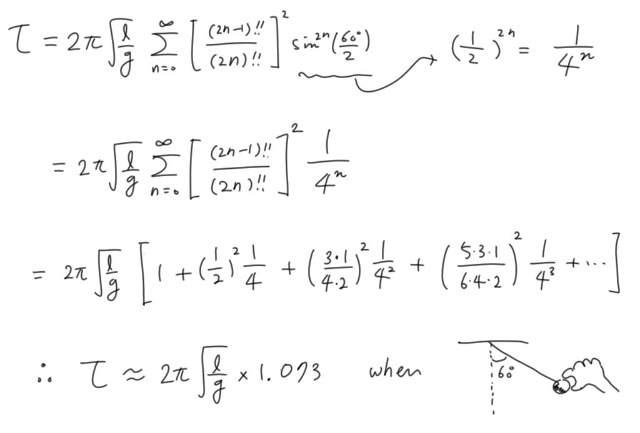 τ = 2π√(l/g) ∑_{n=0}^{∞} [(2n-1)!!/(2n)!!]² sin²ⁿ(60°/2) → (1/2)²ⁿ = 1/4ⁿ
= 2π√(l/g) ∑_{n=0}^{∞} [(2n-1)!!/(2n)!!]² 1/4ⁿ
= 2π√(l/g) [1 + (1/2)² 1/4 + (3·1/4·2)² 1/4² + (5·3·1/6·4·2)² 1/4³ + ⋯]
∴ τ ≈ 2π√(l/g) × 1.073 when 60°